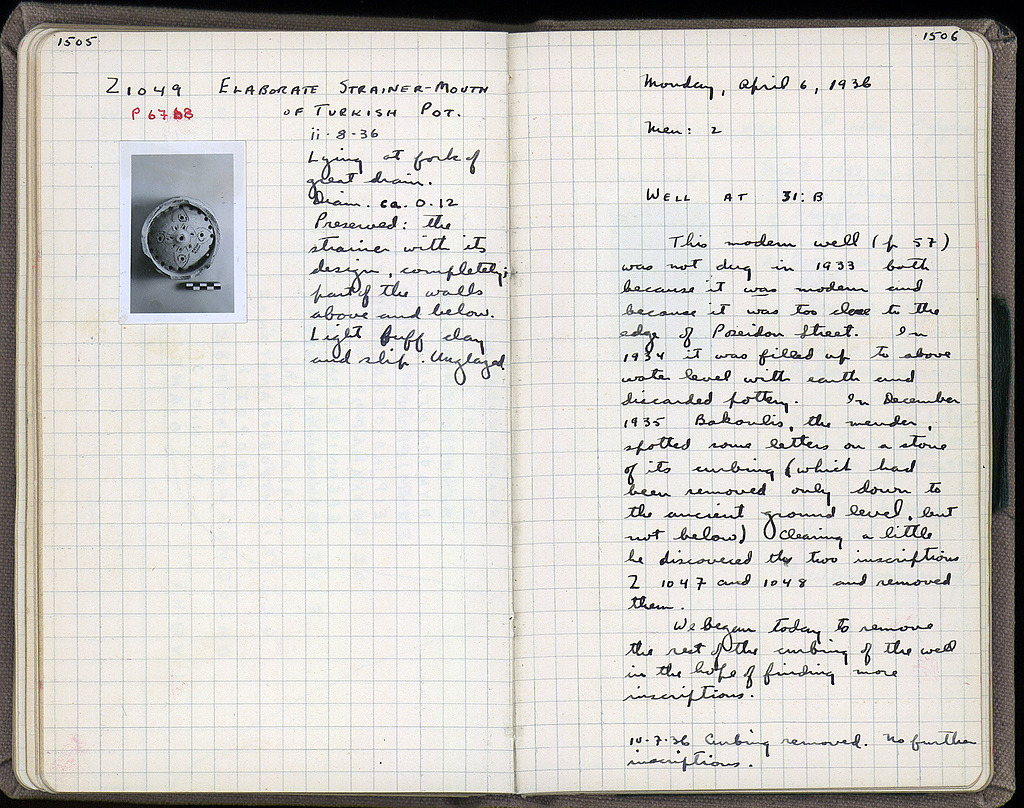 1505
Z 1049 ELABORATE STRAINER-MOUTH
P 6768
OF TURKISH POT.
ii-8-36
Lying at fork of
great drain.
Diam. ca. 0.12
Preserved: the
strainer with its
design, completely;
part of the walls
above and below.
Light buff clay
and slip. Unglazed
1506
Monday, April 6, 1936
Men: 2
WELL AT 31:B
This modern well (p 57)
was not dug in 1933 both
because it was modern and
because it was too close to the
edge of Poseidon Street. In
1934 it was filled up to above
water level with earth and
discarded pottery. In December
1935 Bakoulis, the mender,
spotted some letters on a stone
of its curbing (which had
been removed only down to
the ancient ground level, but
not below) Clearing a little
he discovered the two inscriptions
Z 1047 and 1048 and removed
them.
We began today to remove
the rest of the curbing of the well
in the hope of finding more
inscriptions.
iv-7-36 Curbing removed. No further
inscriptions.